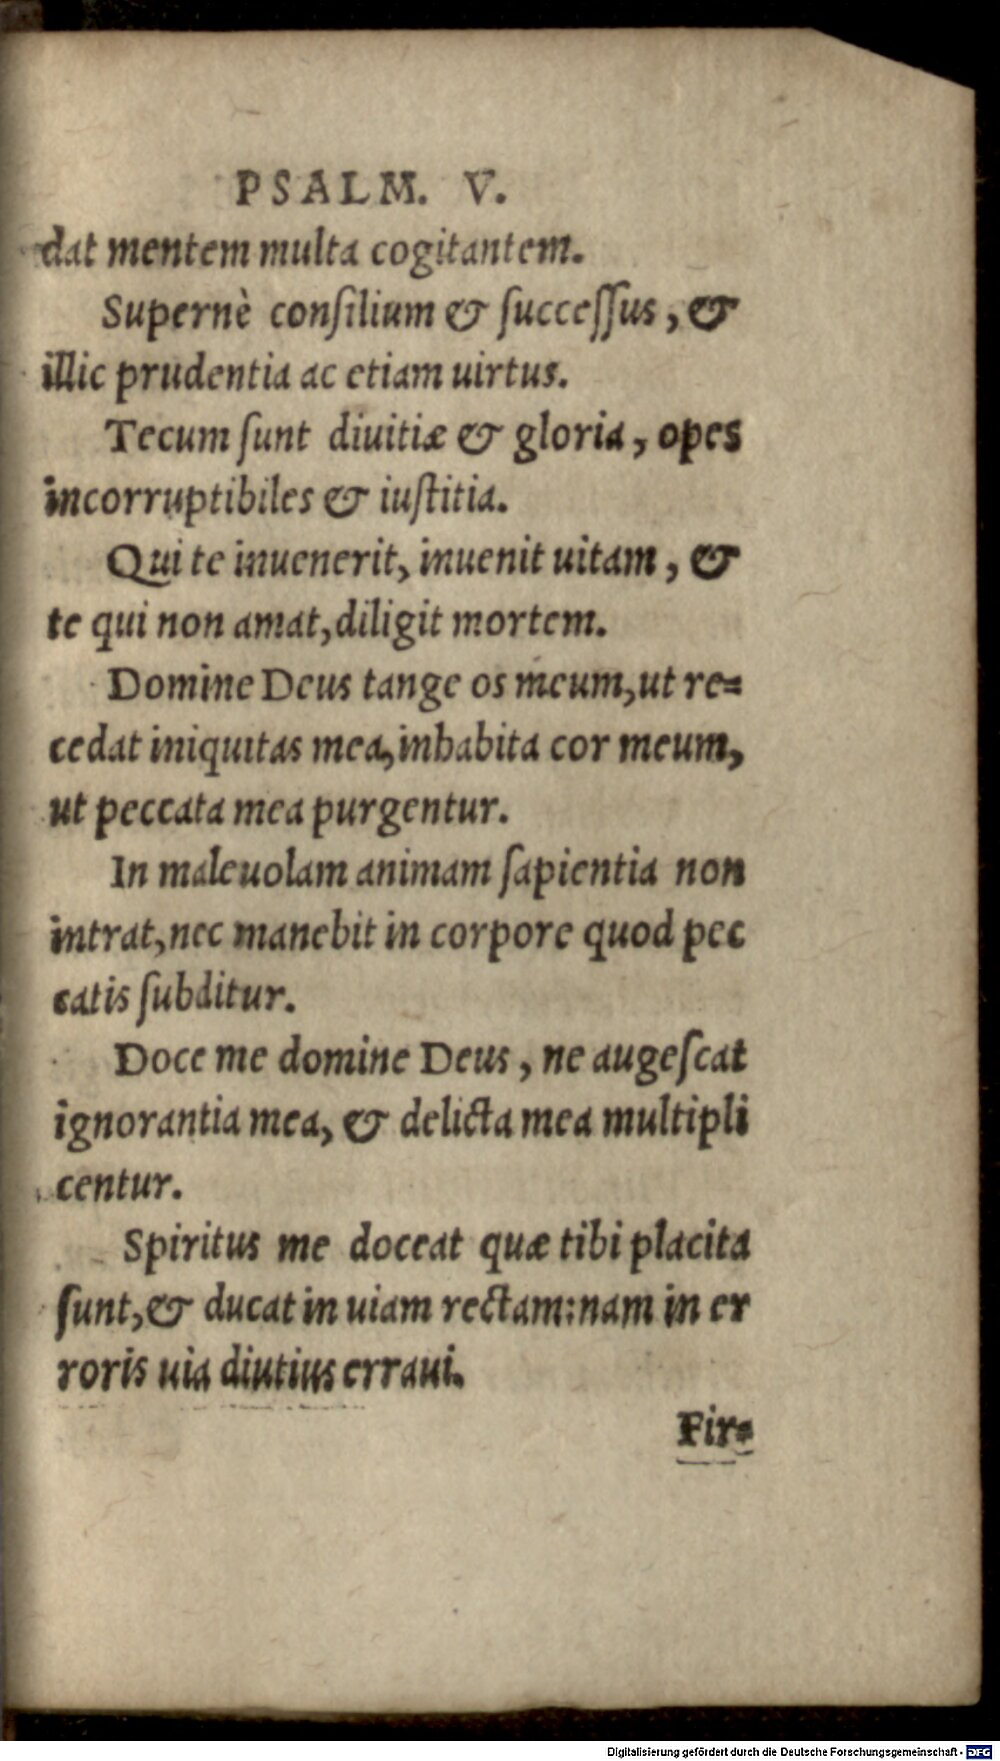 PSALM. V.
dat mentem multa cogitantem.
Supernè consilium & successus, &
illic prudentia ac etiam uirtus.
Tecum sunt diuitiæ & gloria, opes
incorruptibiles & iustitia.
Qui te inuenerit, inuenit uitam, &
te qui non amat, diligit mortem.
Domine Deus tange os meum, ut re-
cedat iniquitas mea, inhabita cor meum,
ut peccata mea purgentur.
In maleuolam animam sapientia non
intrat, nec manebit in corpore quod pec
catis subditur.
Doce me domine Deus, ne augescat
ignorantia mea, & delicta mea multipli
centur.
Spiritus me doceat quæ tibi placita
sunt, & ducat in uiam rectam: nam in er
roris uia diutius erraui.
Fir-
Digitalisierung gefördert durch die Deutsche Forschungsgemeinschaft - DFG